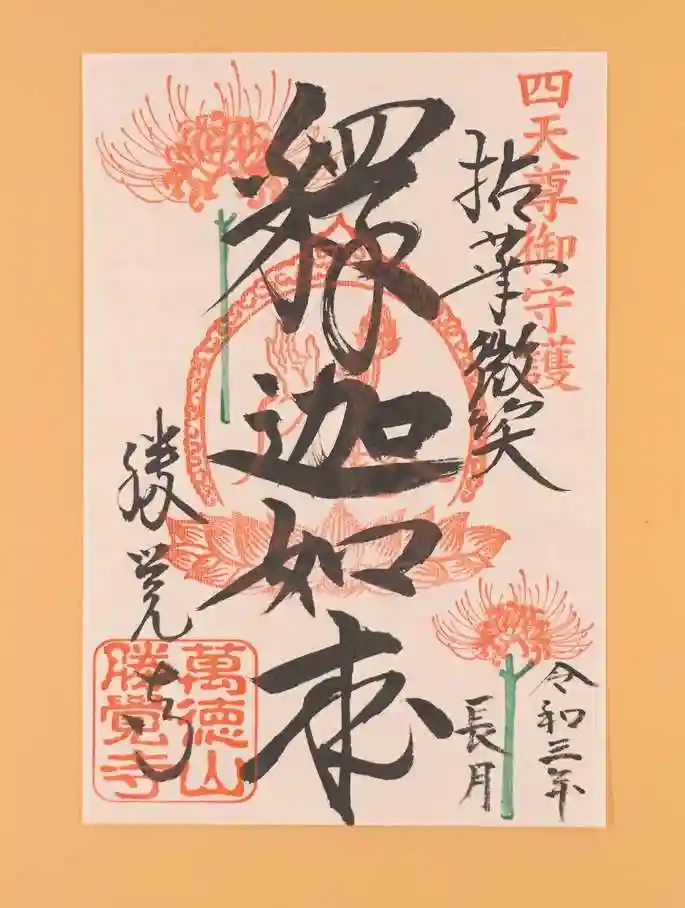 四天尊御守護
拈華微笑
釋迦如来
令和三年
長月
勝覚寺
萬徳山
勝覺寺